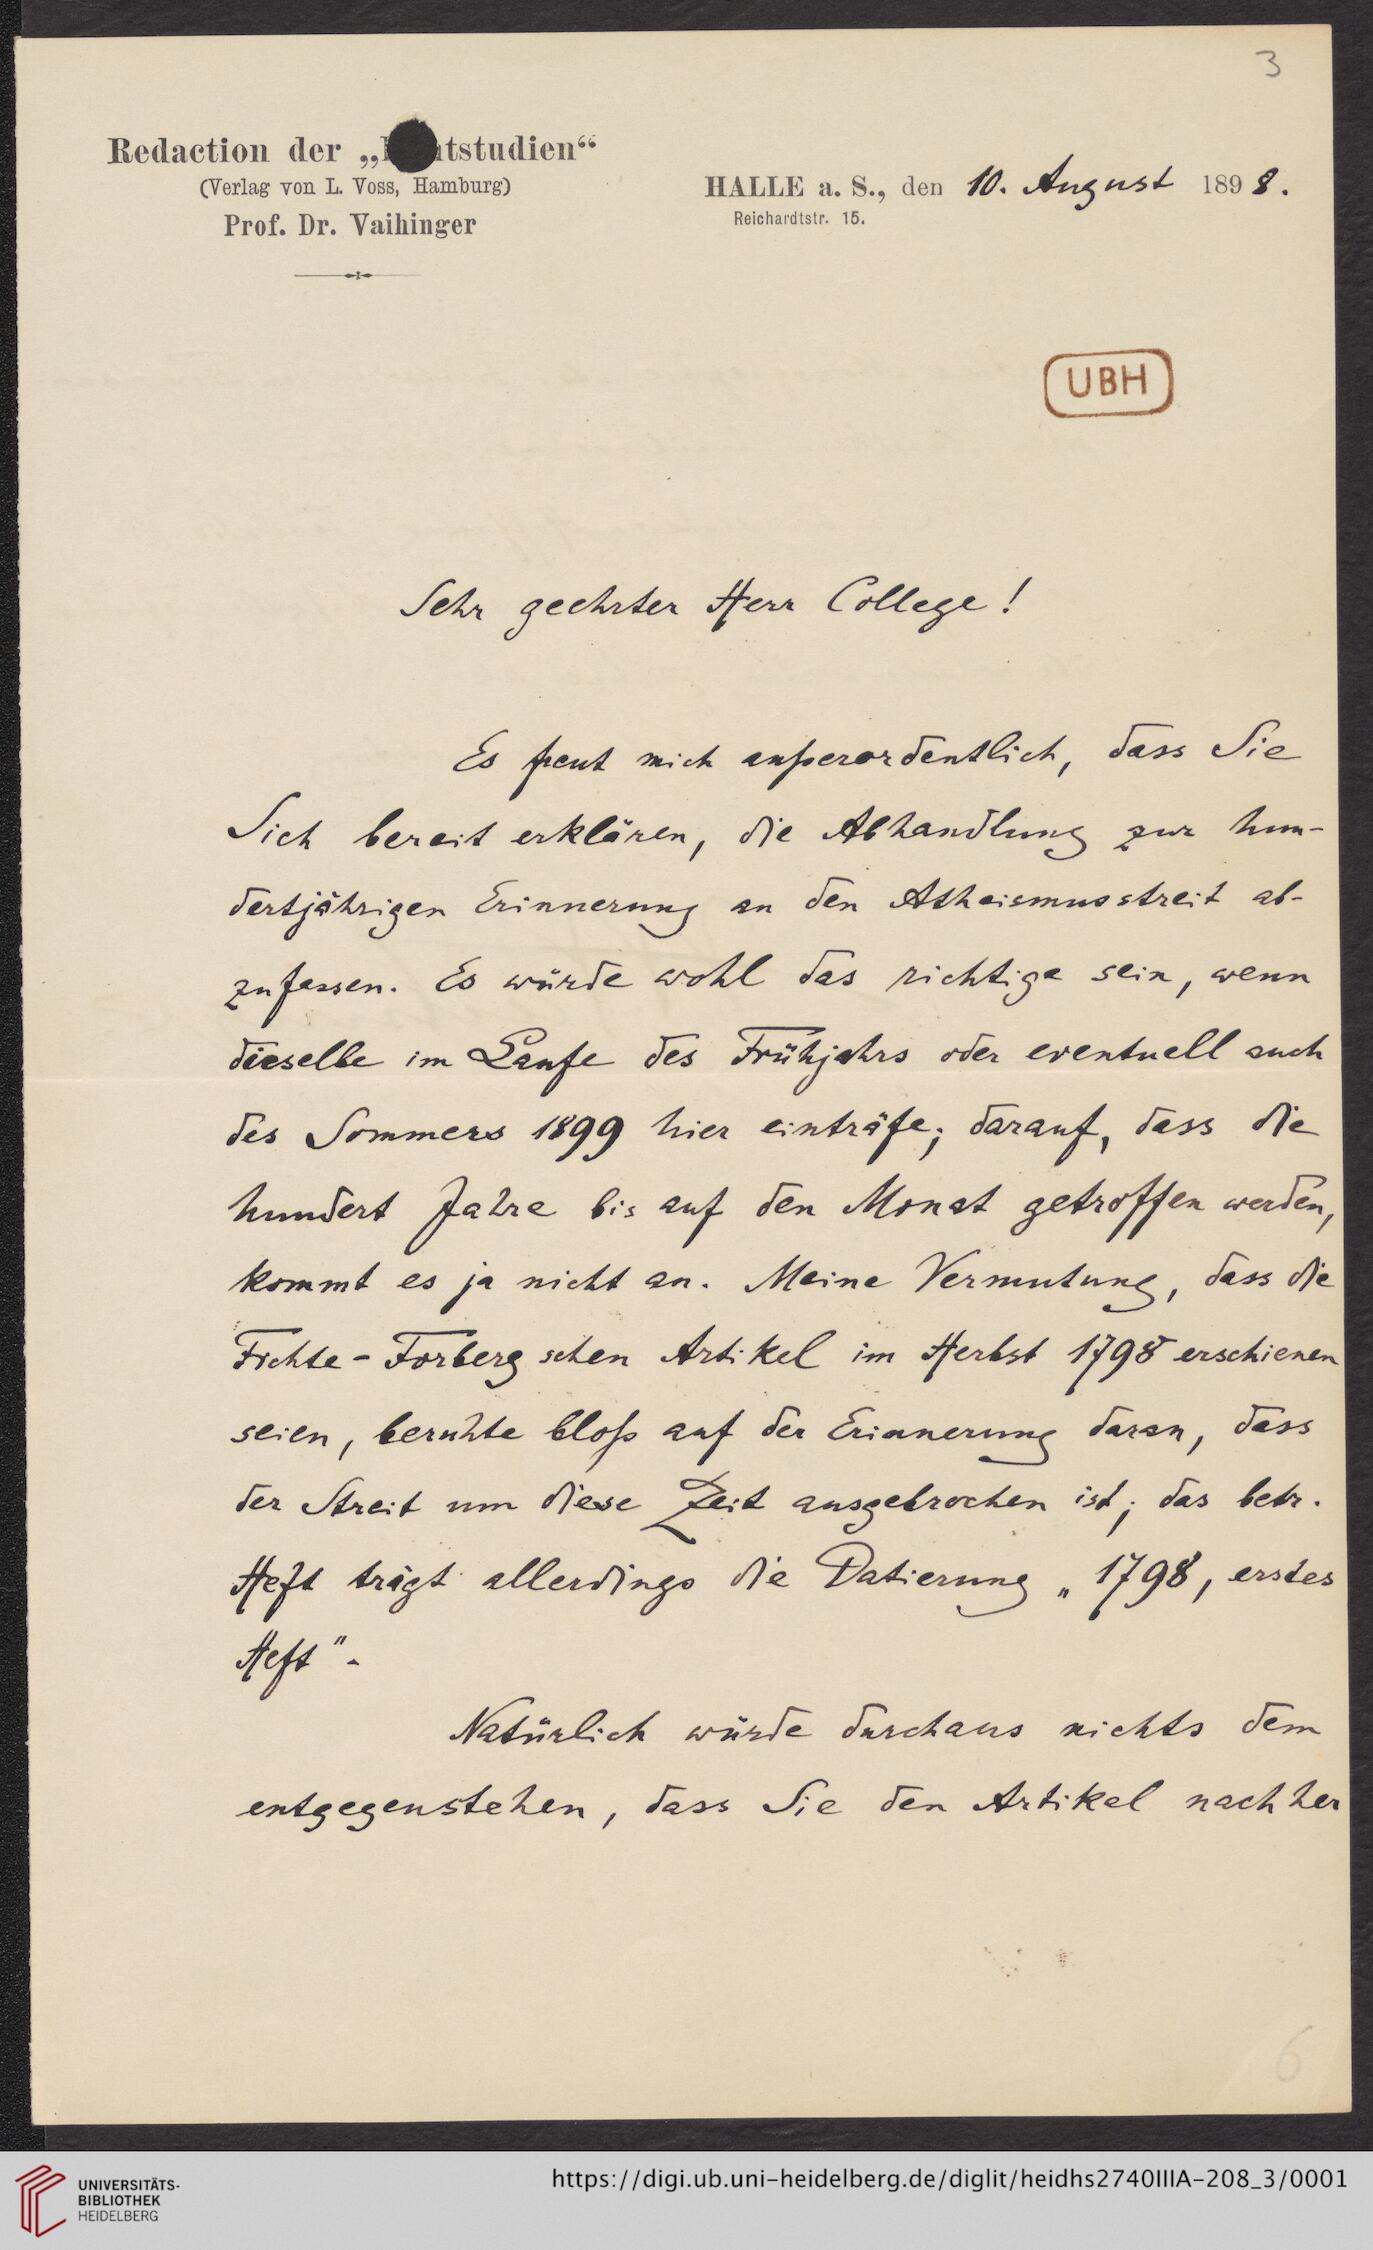 3
Redaction der „Kantstudien“
(Verlag von L. Voss, Hamburg)
Prof. Dr. Vaihinger
HALLE a. S., den 10. August 1898.
Reichardtstr. 15.
UBH
Sehr geehrter Herr College!
Es freut mich außerordentlich, dass Sie
Sich bereit erklären, die Abhandlung zur hun-
dertjährigen Erinnerung an den Atheismusstreit ab-
zufassen. Es würde wohl das richtige sein, wenn
dieselbe im Laufe des Frühjahrs oder eventuell auch
des Sommers 1899 hier einträfe; darauf, dass die
hundert Jahre bis auf den Monat getroffen werden,
kommt es ja nicht an. Meine Vermutung, dass die
Fichte-Forbergschen Artikel im Herbst 1798 erschienen
seien, beruhte bloß auf der Erinnerung daran, dass
der Streit um diese Zeit ausgebrochen ist; das betr.
Heft trägt allerdings die Datierung „1798, erstes
Heft".
Natürlich würde durchaus nichts dem
entgegenstehen, dass Sie den Artikel nachher
6
UNIVERSITÄTS-
BIBLIOTHEK
HEIDELBERG
https://digi.ub.uni-heidelberg.de/diglit/heidhs2740IIIA-208_3/0001